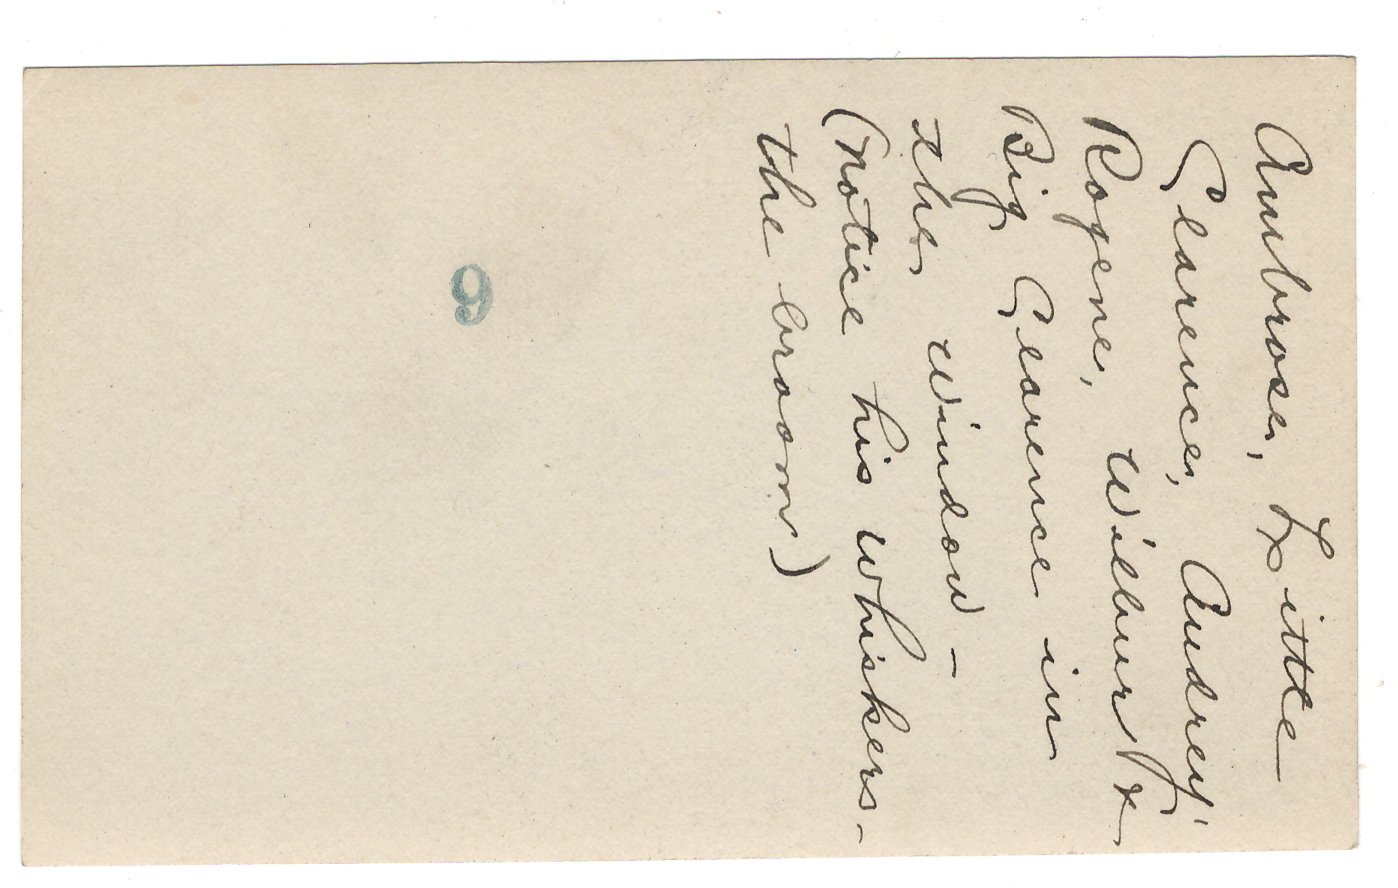 Ambrose, Little
Clarence, Audrey
Rogene, Wilbur &
Big Clarence in
the window -
(notice his whiskers -
the broom)
9